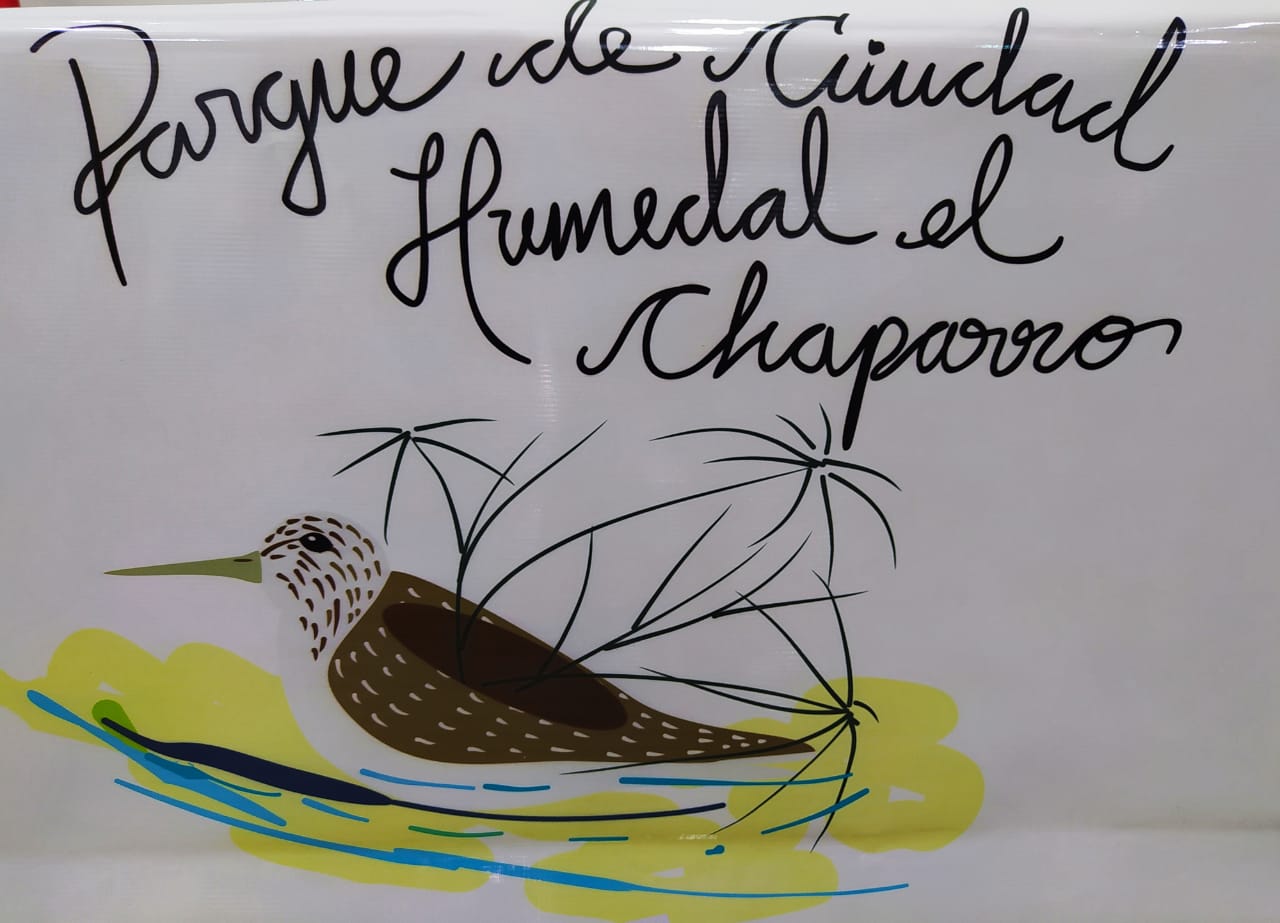 Parque de Ciudad
Humedal el
Chaparro